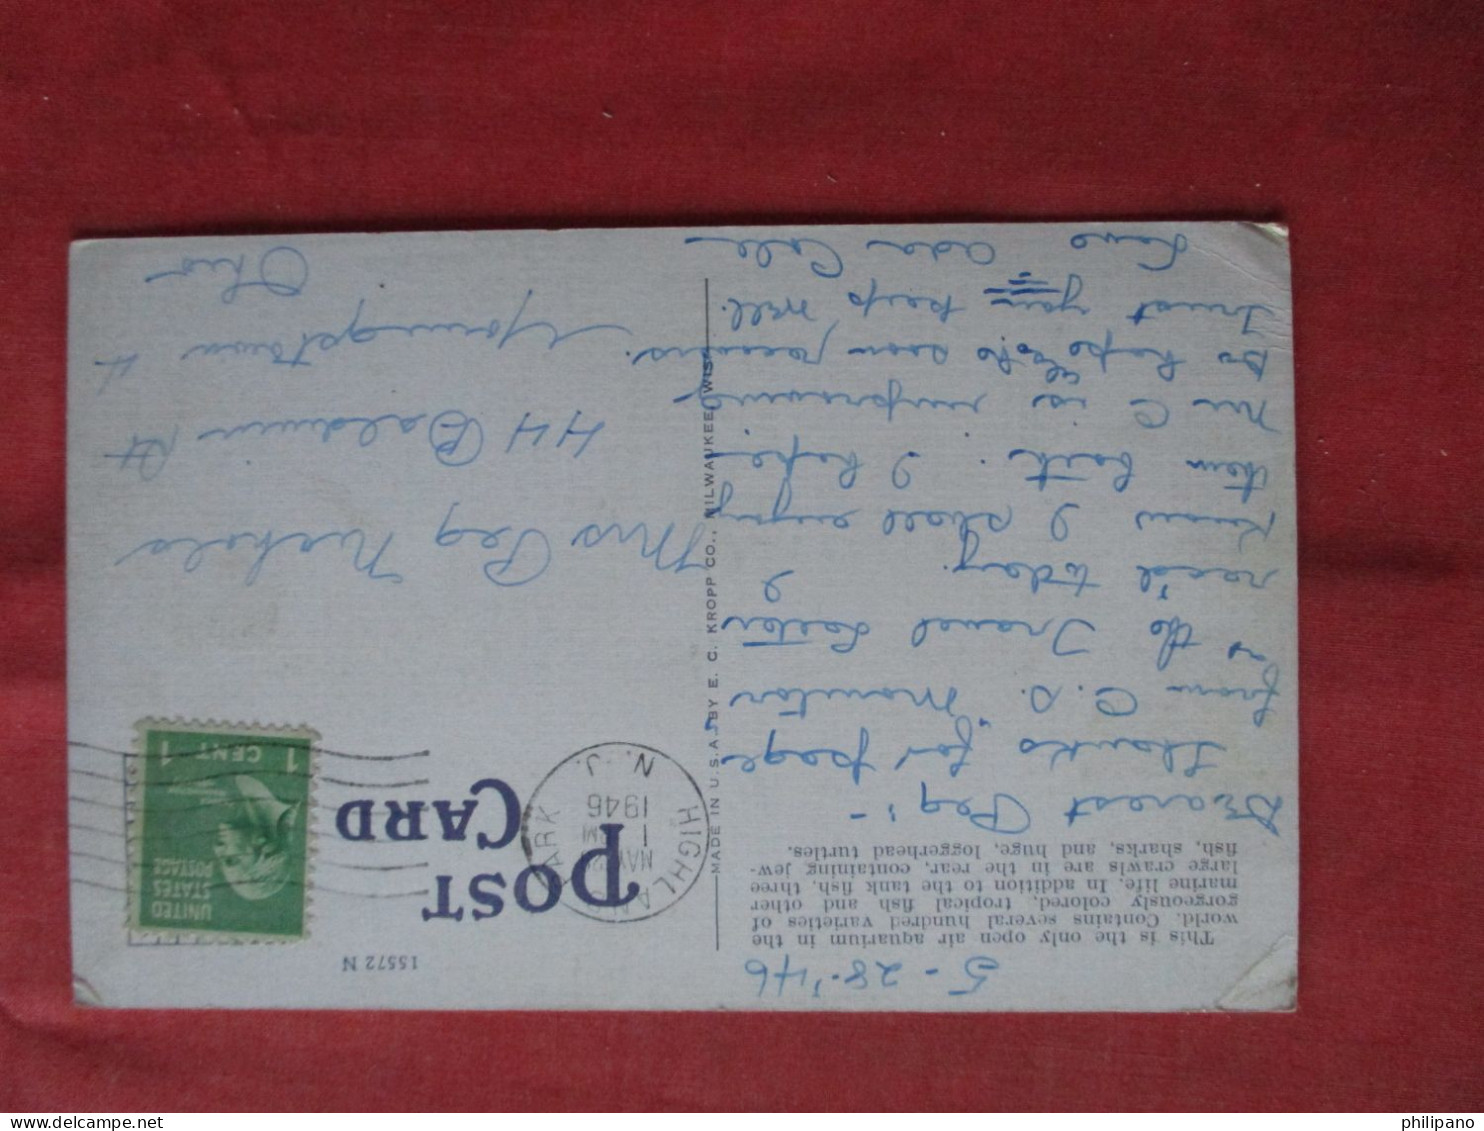 5-28-'46
This is the only open air aquarium in the
world. Contains several hundred varieties of
gorgeously colored, tropical fish and other
marine life. In addition to the tank fish, three
large crawls are in the rear, containing jew-
fish, sharks, and huge, loggerhead turtles.
Dearest Peg: -
Thanks for page
from C.S. Monitor
the Travel Letter
rec'd today. I
know I shall enjoy
them both. I hope
Mr C is improving.
Do hope soon
Trust you keep well.
Love Ada Cole
MADE IN U.S.A. BY E. C. KROPP CO., MILWAUKEE, WIS.
15572 N
POST
CARD
HIGHLAND PARK
N. J.
MAY
1 PM
1946
UNITED
STATES
POSTAGE
1 CENT 1
Mrs Peg Nichols
44 Baldwin St
Youngstown 4
Ohio
philipano